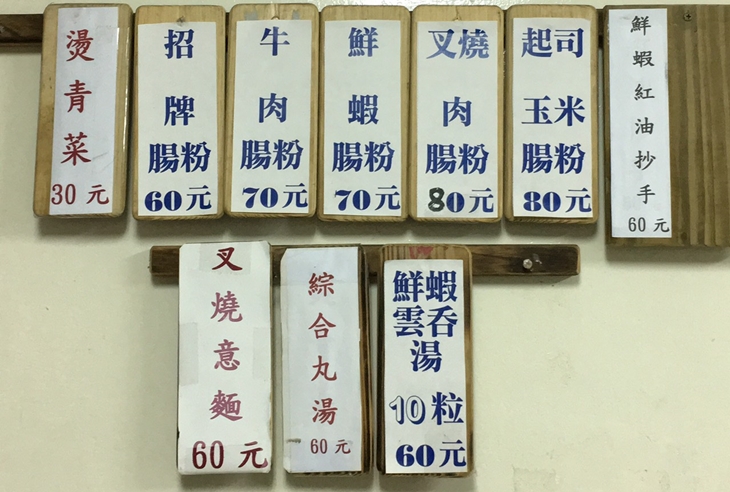 燙青菜
30元
招牌腸粉
60元
牛肉腸粉
70元
鮮蝦腸粉
70元
叉燒肉腸粉
80元
起司玉米腸粉
80元
鮮蝦紅油抄手
60元
叉燒意麵
60元
綜合丸湯
60元
鮮蝦
雲吞
湯
10粒
60元